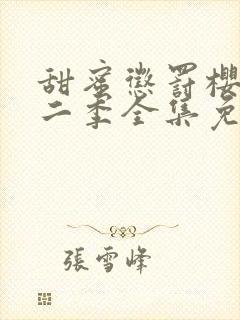 甜蜜懲罰櫻
二季全集免
張雪峰